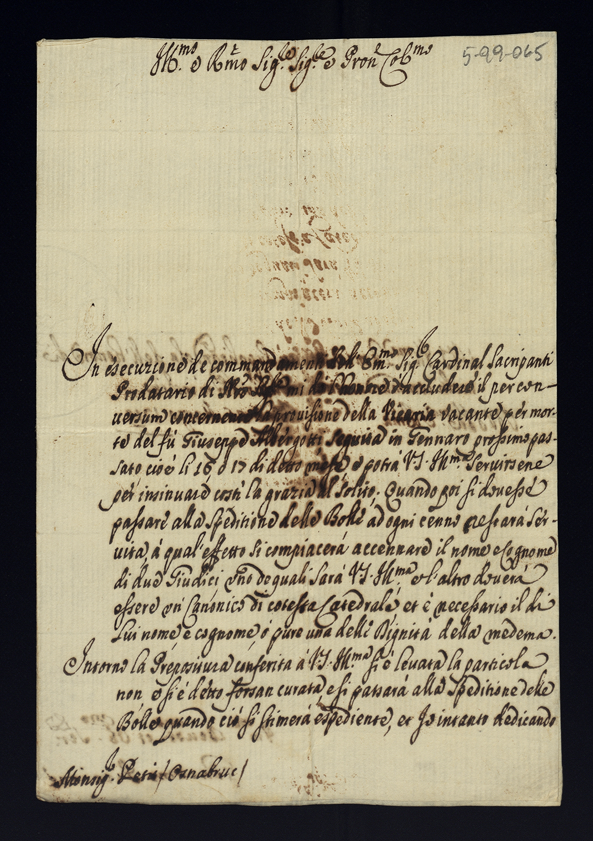 5-99-065
Ill.mo e R.mo Sig.re Sig.re e Pron.e Col.mo
In esecuzione de commandamenti del Em.mo Sig.r Cardinal Sacripanti
Prodatario di mi do l'honore d'accluderci il percon-
versum concernente la provisione della Vicaria vacante per mor-
te del fú Giuseppe Albergotti seguita in Gennaro prossimo pas-
sato cioé li 16 ó 17 di detto mese e potrá V.S. Ill.ma servirsene
per insinuare costi la grazia al solito. Quando poi si dovesse
passare alla speditione delle Bolle ad ogni cenno restará ser-
vita, á qual'effetto si compiacerá accennare il nome e Cognome
di due Giudici uno de quali sará V.S. Ill.ma e l'altro doverá
essere un Canonico di cotesta Cattedrale et é necessario il di
lui nome e cognome ó pure una delle Dignitá della medema.
Intorno la Prepositura conferita á V.S. Ill.ma si é levata la particola
non e si é detto forsan curata, e si passará alla speditione delle
Bolle quando ció si stimerá espediente, et Io intanto dedicando
Monsig.r Petri / Osnabruc /